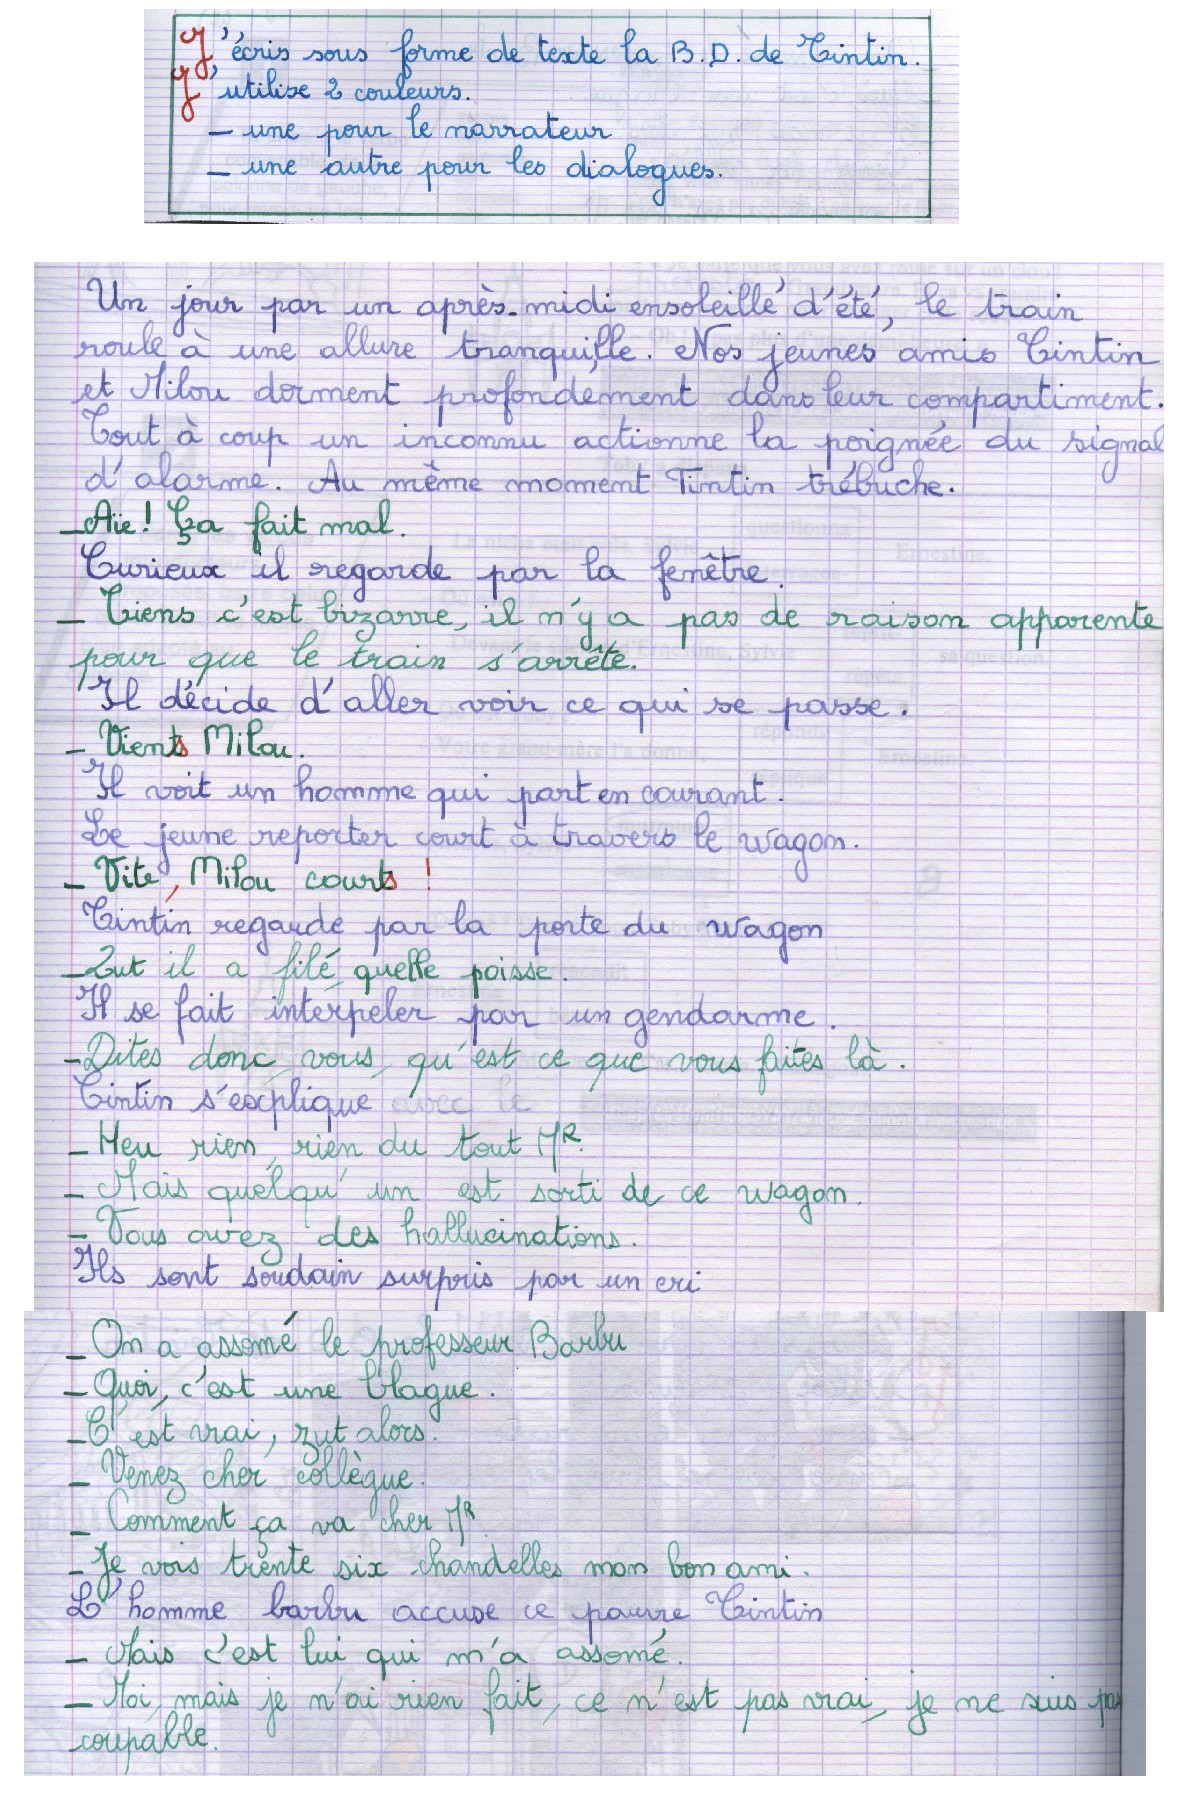 J'écris sous forme de texte la B.D. de Tintin.
J'utilise 2 couleurs.
- une pour le narrateur
- une autre pour les dialogues.
Un jour par un après-midi ensoleillé d'été, le train
roule à une allure tranquille. Nos jeunes amis Tintin
et Milou dorment profondément dans leur compartiment.
Tout à coup un inconnu actionne la poignée du signal
d'alarme. Au même moment Tintin trébuche.
- Aïe! Ça fait mal.
Curieux il regarde par la fenêtre.
- Tiens c'est bizarre, il n'y a pas de raison apparente
pour que le train s'arrête.
Il décide d'aller voir ce qui se passe.
- Viens Milou.
Il voit un homme qui part en courant.
Le jeune reporter court à travers le wagon.
- Vite, Milou cours !
Tintin regarde par la porte du wagon
- Zut il a filé, quelle poisse.
Il se fait interpeler par un gendarme.
- Dites donc, vous, qu'est ce que vous faites là.
Tintin s'explique avec le
- Heu rien, rien du tout MR.
- Mais quelqu'un est sorti de ce wagon.
- Vous avez des hallucinations.
Ils sont soudain surpris par un cri
- On a assomé le professeur Barbu
- Quoi, c'est une blague.
- C'est vrai, zut alors.
- Venez cher collègue.
- Comment ça va cher MR
- Je vois trente six chandelles mon bon ami.
L'homme barbu accuse ce pauvre Tintin
- Mais c'est lui qui m'a assomé.
- Moi, mais je n'ai rien fait, ce n'est pas vrai, je ne suis pas
coupable.